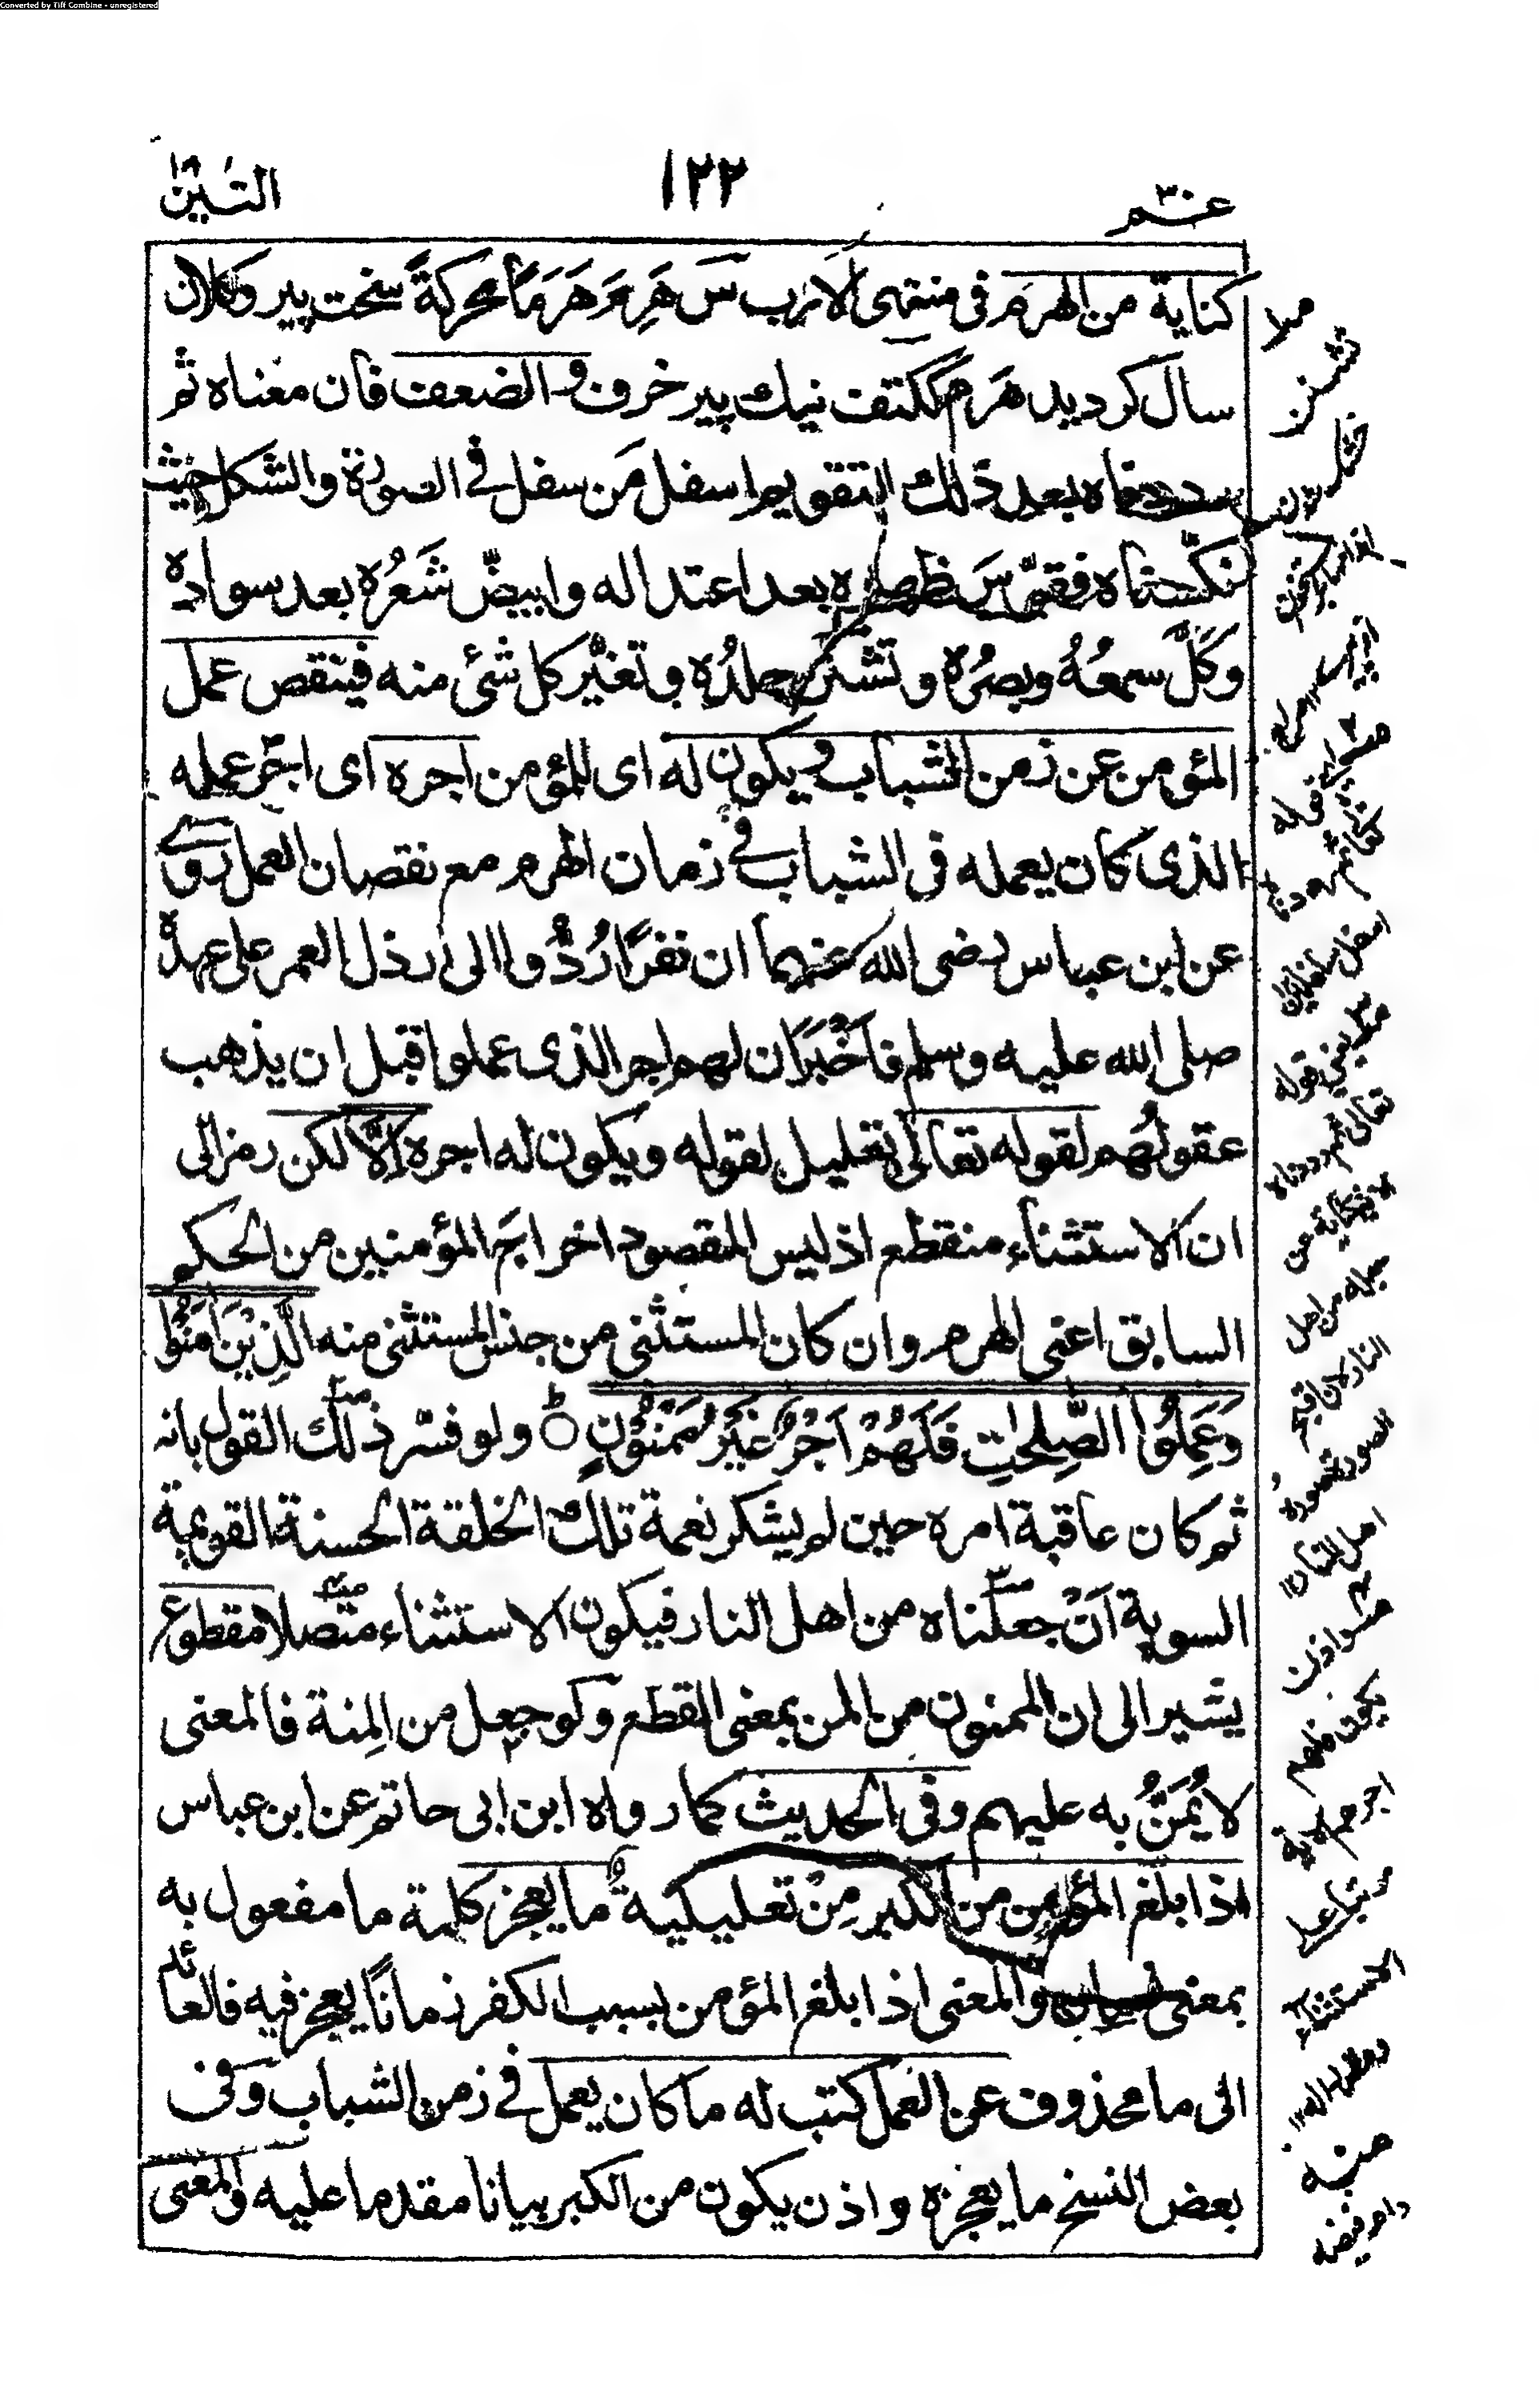 Converted by Tiff Combine - unregistered
عم ٣٠
١٢٢
التين
كناية من الهرم فى منتهى الارب س هَرِمَ هَرَمًا محركةً سخت پير وكلان
سال كرديد هَرِم ككتف نيك پير خرف و الضعف فان معناه ثم
رددناه بعد ذلك التقويم اسفل من سفل فى الصورة والشكل حيث
نكسناه فقوّس ظهره بعد اعتداله وابيضّ شَعُره بعد سواده
وكَلَّ سمعُهُ وبصرُه وتشنن جلدُه وتغيّر كل شئ منه فينقص عمل
المؤمن عن زمن الشباب ويكون له اى للمؤمن اجره اى اجر عمله
الذى كان يعمله فى الشباب فى زمان الهرم مع نقصان العمل روى
عن ابن عباس رضى الله عنهما ان نفرًا رُدُّوا الى ارذل العمر على عهده
صلى الله عليه وسلم فاَخْبَرَ ان لهم اجر الذى عملوا قبل ان يذهب
عقولُهم لقوله تعالى تعليل لقوله ويكون له اجره اِلَّا لكن رمز الى
ان الاستثناء منقطع اذ ليس المقصود اخراجَ المؤمنين من الحكم
السابق اعنى الهرم وان كان المستثنى من جنس المستثنى منه الَّذِيْنَ اٰمَنُوْا
وَعَمِلُوا الصّٰلِحٰتِ فَلَهُمْ اَجْرٌ غَيْرُ مَمْنُوْنٍ ط ولو فسّر ذلك القول بانه
ثم كان عاقبة امره حين لم يشكر نعمة تلك الخلقة الحسنة القويمة
السوية اَنْ جعلناه من اهل النار فيكون الاستثناء متصلا مقطوع
يشير الى ان الممنون من المن بمعنى القطع ولو جعل من المِنة فالمعنى
لا يُمَنُّ به عليهم وفى الحديث كما رواه ابن ابى حاتم عن ابن عباس
اذا بلغ المؤمن من الكبر مِنْ تعليلية ما يعجز كلمة ما مفعول به
بمعنى والمعنى اذا بلغ المؤمن بسبب الكفر زمانًا يعجز فيه فالعائد
الى ما محذوف عن العمل كتب له ما كان يعمل فى زمن الشباب وفى
بعض النسخ ما يعجزه واذن يكون من الكبر بيانا مقدما عليه والمعنى
تعالى ثم رددناه
من اهل
النار لان اقبح
اهل النار ١٢
يكون فلهم
الاستثناء
منه